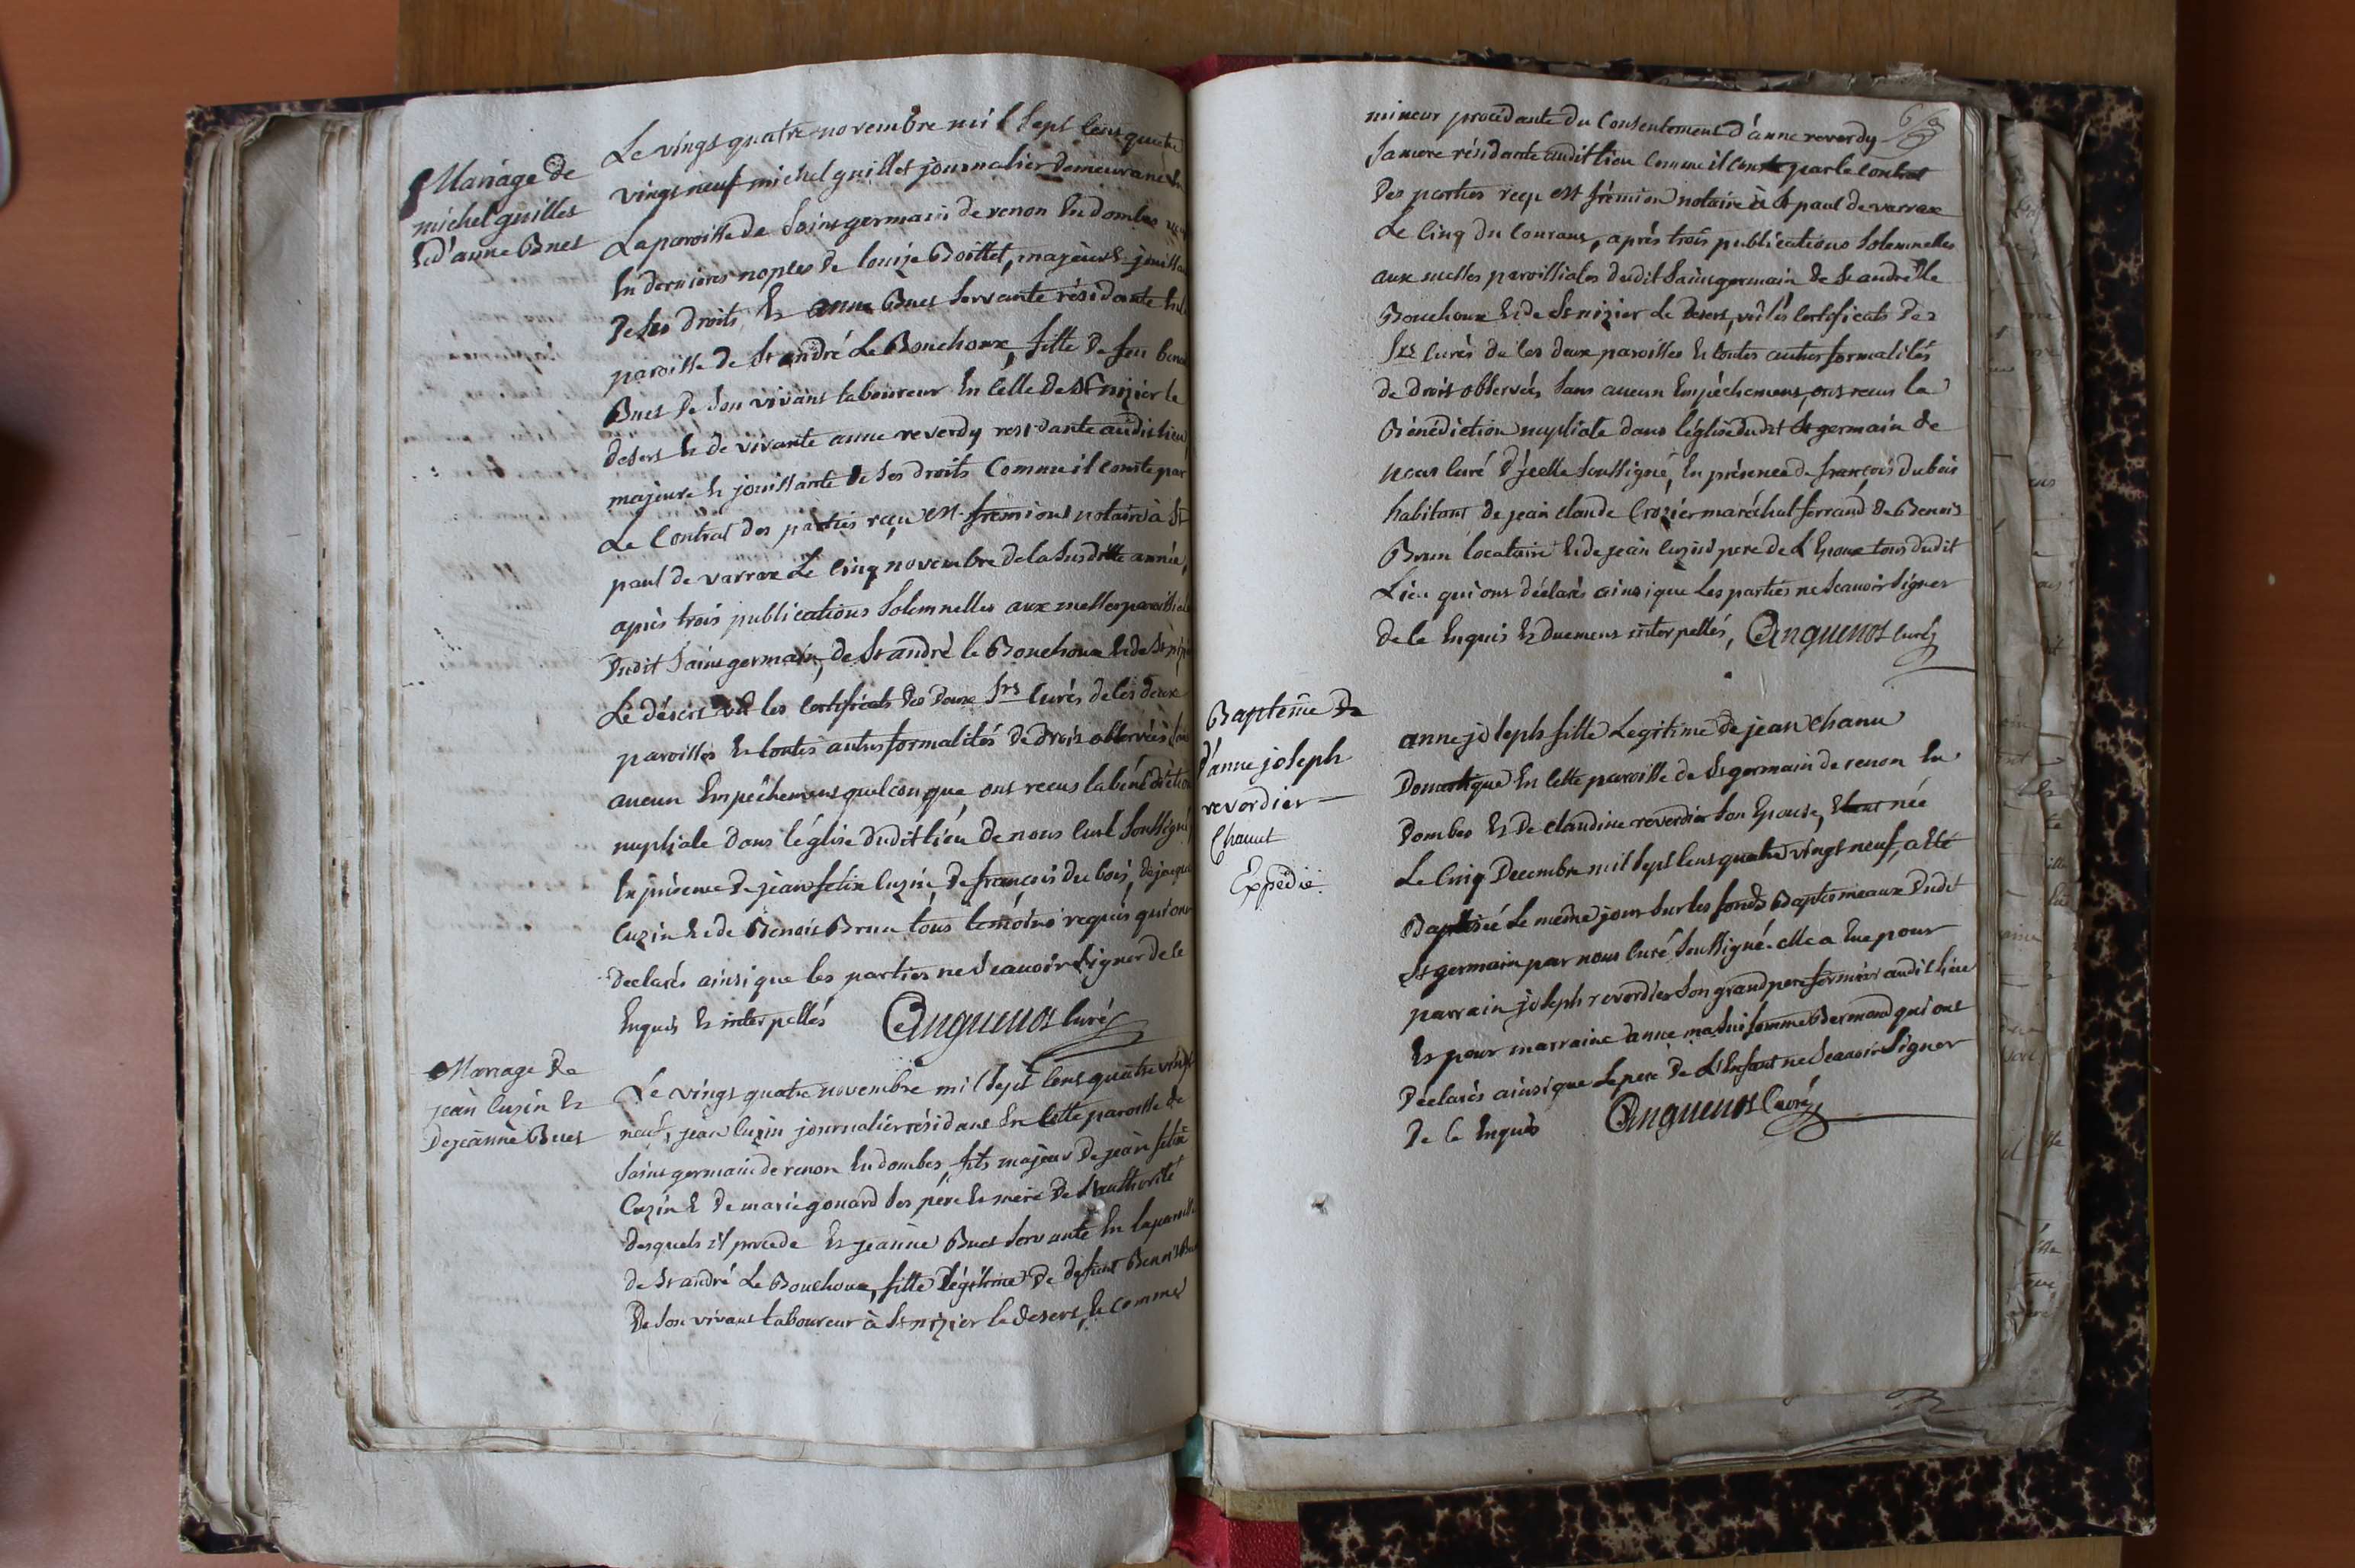 Mariage de
michel guillet
Et d'anne Buet
Le vingt quatre novembre mil sept cent quatre
vingt neuf michel guillet journalier demeurant En
La paroisse de Saint germain de renon En dombes
En dernieres nopces de louise Boittet, majeur et jouissant
de ses droits Et anne Buet servante résidante En
paroisse de St andré Le Bouchoux, fille de feu benoit
Buet de son vivant laboureur En celle de St nizier le
desert Et de vivante anne reverdy residante audit lieu
majeure Et jouissante de ses droits Comme il conste par
Le Contrat des parties reçu est frémion notaire à St
paul de varrax Le cinq novembre de la susditte année,
après trois publications Solemnelles aux messes paroissiales
dudit Saint germain, de St andré le Bouchoux Et de St nizier
Le désert vu les certificats des deux Srs Curés de ces deux
paroisses Et toutes autres formalités de droit observées sans
aucun Empêchement quelconque, ont recus la bénédiction
nuptiale dans l'église dudit lieu de nous Curé soussigné
En présence de jean felix Cuzin, de francois du bois, de jacques
Cuzin Et de Benoit Brun tous témoins requis qui ont
déclarés ainsi que les parties ne scavoir signer de ce
Enquis Et interpellés Anguenot Curé
Mariage de
jean Cuzin Et
de jeanne Buet
Le vingt quatre novembre mil sept cent quatre vingt
neuf, jean Cuzin journalier résidant En cette paroisse de
Saint germain de renon En dombes, fils majeur de jean felix
Cuzin Et de marie gonard ses père Et mère de L'authorité
desquels il procede Et jeanne Buet servante En la paroisse
de St andré Le Bouchoux, fille légitime de defunt Benoit Buet
de son vivant laboureur à St nizier le desert, Et comme
mineur procédante du Consentement d'anne reverdy
sa mere résidante audit lieu comme il conste par le contrat
des parties reçu est frémion notaire à St paul de varrax
Le cinq du courant, après trois publications solemnelles
aux messes paroissiales dudit Saint germain de St andré Le
Bouchoux Et de St nizier Le desert, vu les certificats des
Srs curés de ces deux paroisses Et toutes autres formalités
de droit observées sans aucun Empêchement, ont recus la
Bénédiction nuptiale dans l'église dudit St germain de
nous curé d'icelle soussigné, En présence de françois dubois
habitant de jean claude Crozier maréchal ferrand de Benoit
Brun locataire Et de jean Cuzin pere de L'Epoux tous dudit
Lieu qui ont déclarés ainsi que Les parties ne scavoir signer
de ce Enquis Et duement interpellés, Anguenot Curé
Baptême de
d'anne joseph
reverdier
Chanut
Expédié
anne joseph fille Legitime de jean Chanu
Domestique En cette paroisse de St germain de renon En
Dombes Et de claudine reverdier son Epouse, Etant née
Le cinq Decembre mil sept cent quatre vingt neuf, a été
Baptisée Le même jour sur les fonds Baptismeaux dudit
St germain par nous curé soussigné. elle a Eue pour
parrain joseph reverdier son grand pere fermier audit Lieu
Et pour marraine anne masui femme Bermand qui ont
Déclarés ainsi que Le pere de L'Enfant ne scavoir signer
De ce Enquis Anguenot Curé